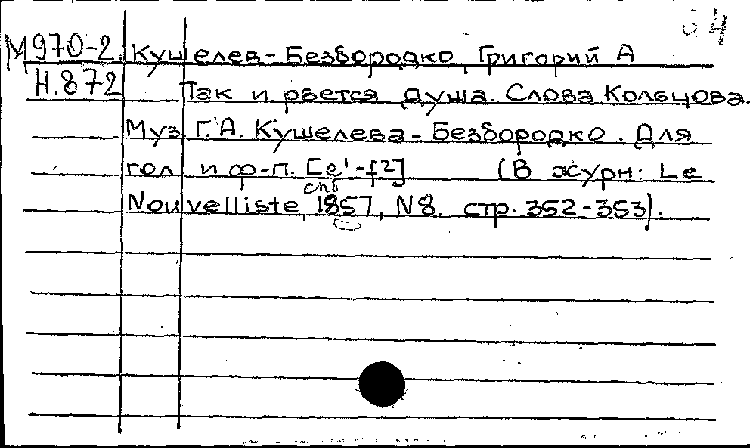 64
М970-2 Кушелев-Безбородко, Григорий А
Н.872 Так и рвется душа. Слова Кольцова.
Муз. Г.А. Кушелева-Безбородко. Для
гол. и ф-п. [e¹-f²] (В журн: Le
Nouvelliste, 1857, N8. стр. 352-353).